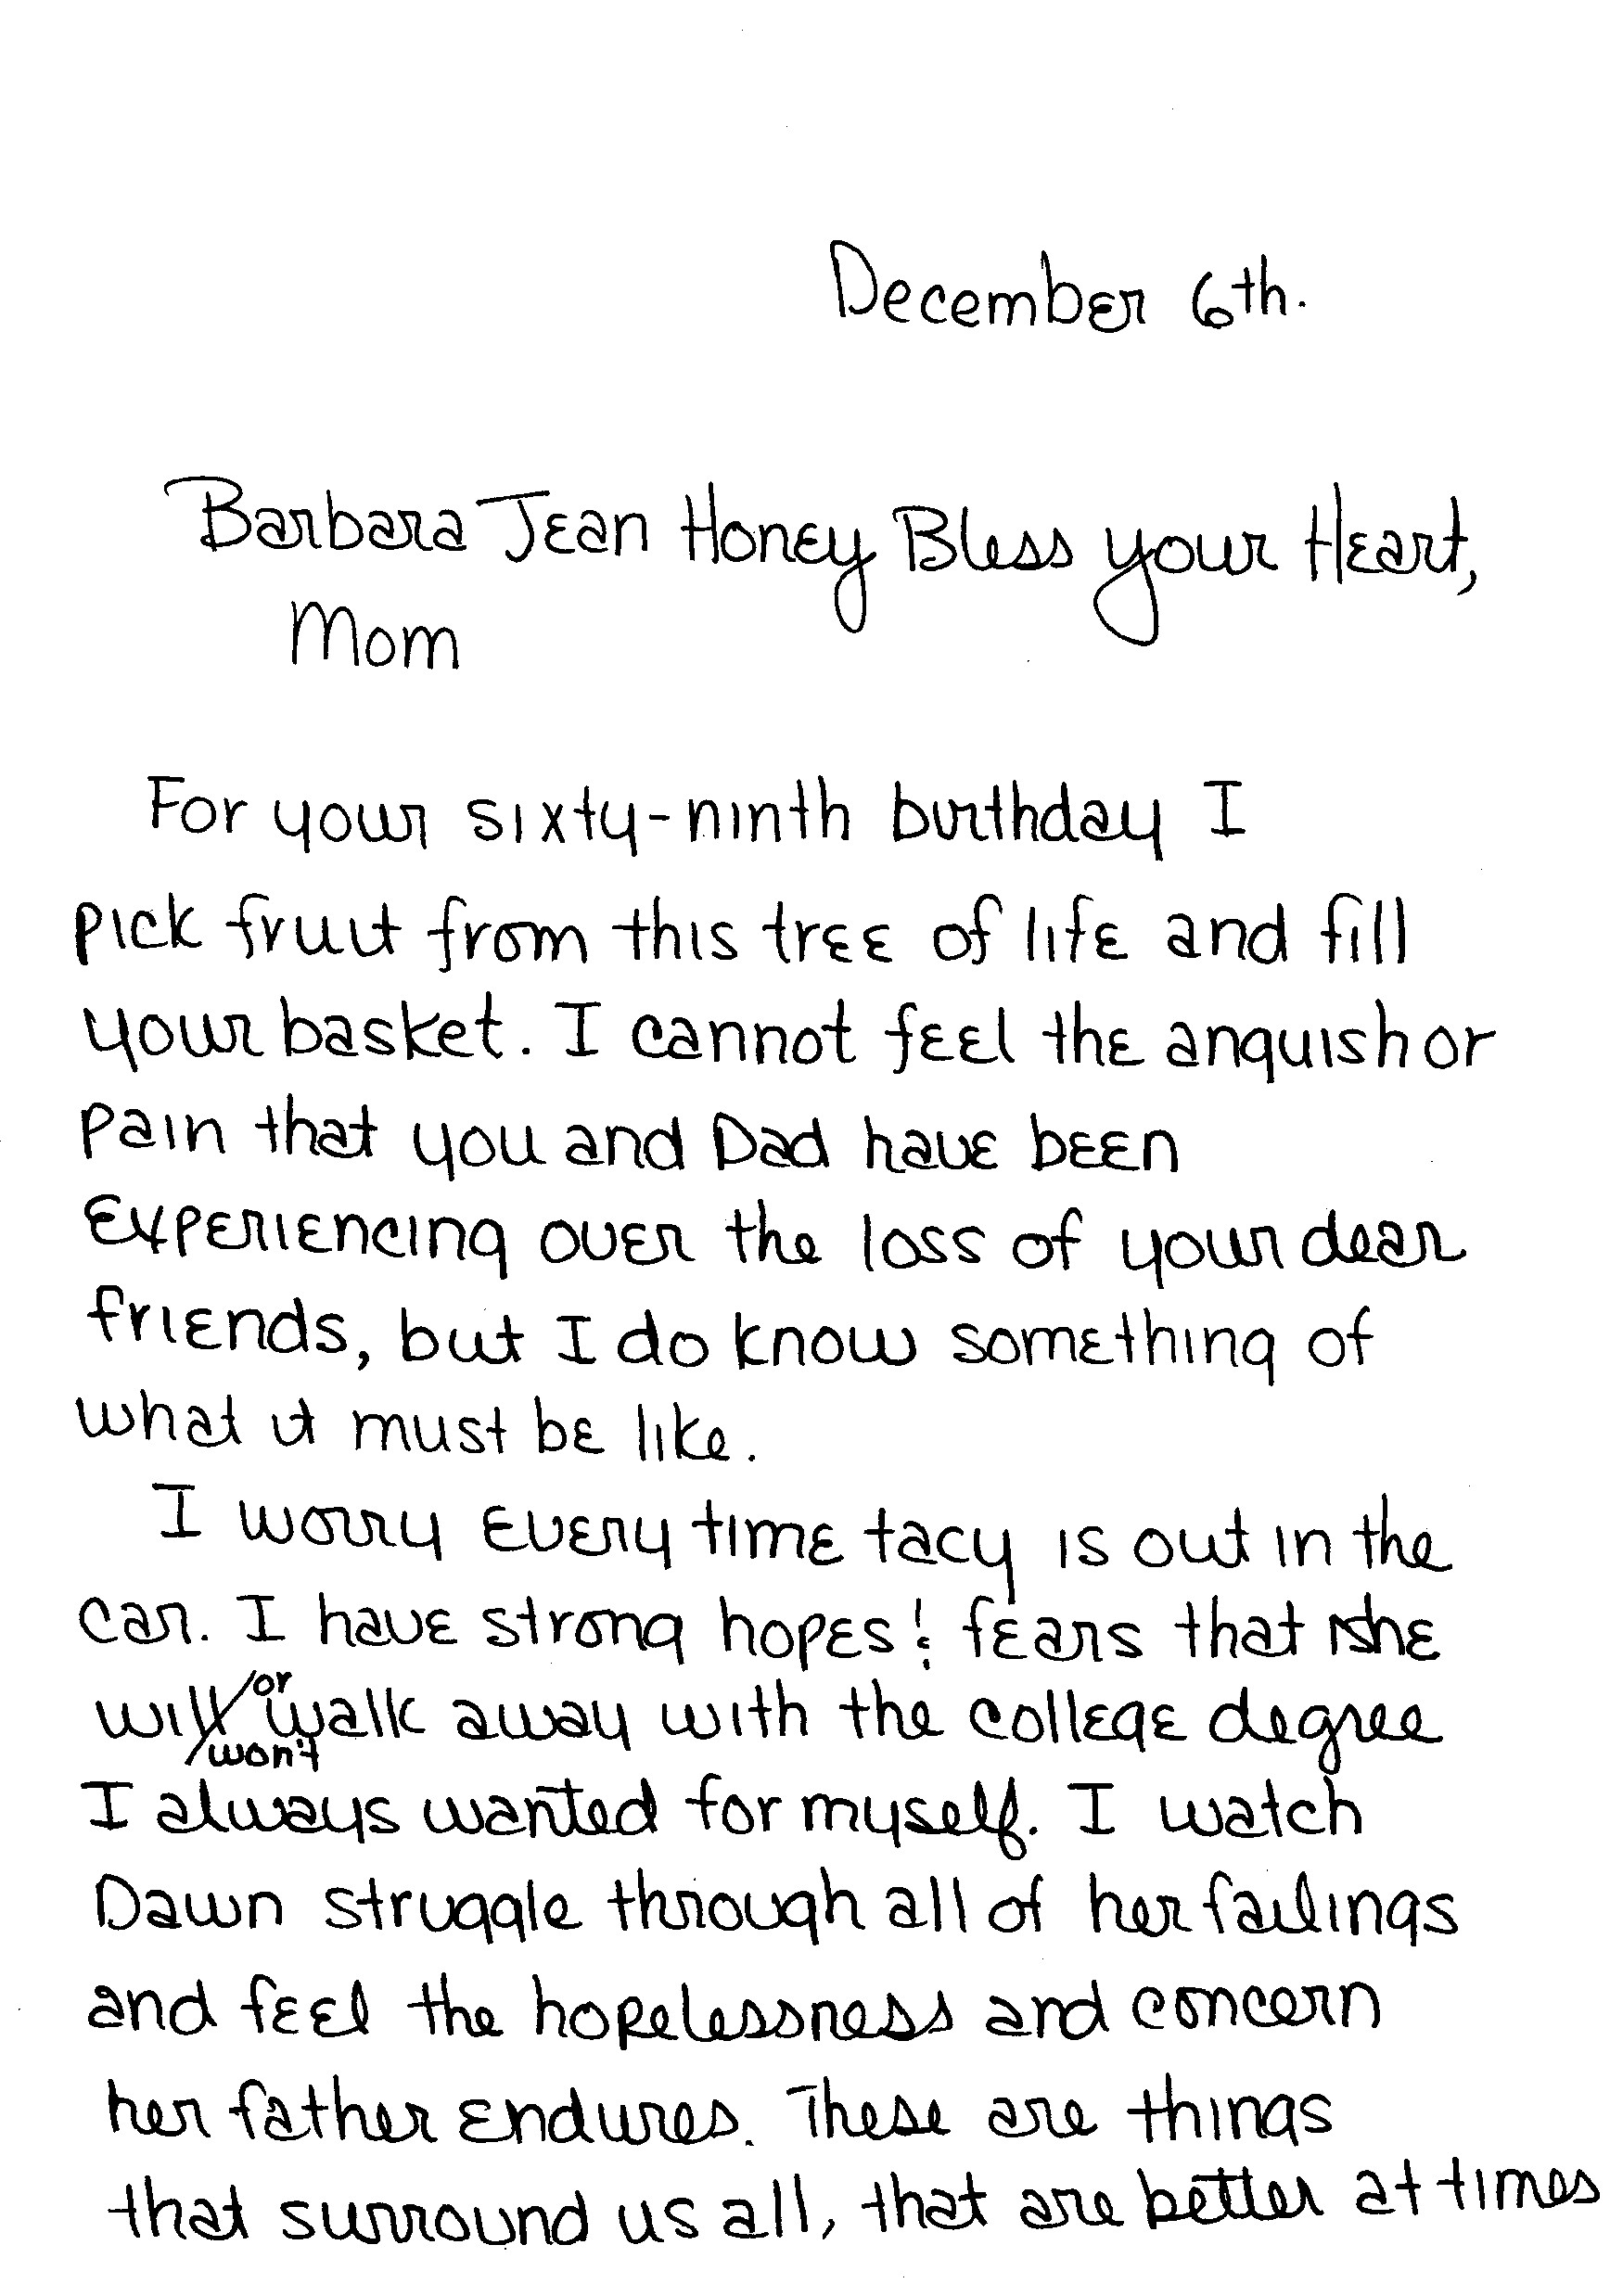 December 6th.
Barbara Jean Honey Bless your Heart,
Mom
For your sixty-ninth birthday I
pick fruit from this tree of life and fill
your basket. I cannot feel the anguish or
pain that you and Dad have been
experiencing over the loss of your dear
friends, but I do know something of
what it must be like.
I worry every time tacy is out in the
car. I have strong hopes & fears that she
will/or won't walk away with the college degree
I always wanted for myself. I watch
Dawn struggle through all of her failings
and feel the hopelessness and concern
her father endures. These are things
that surround us all, that are better at times